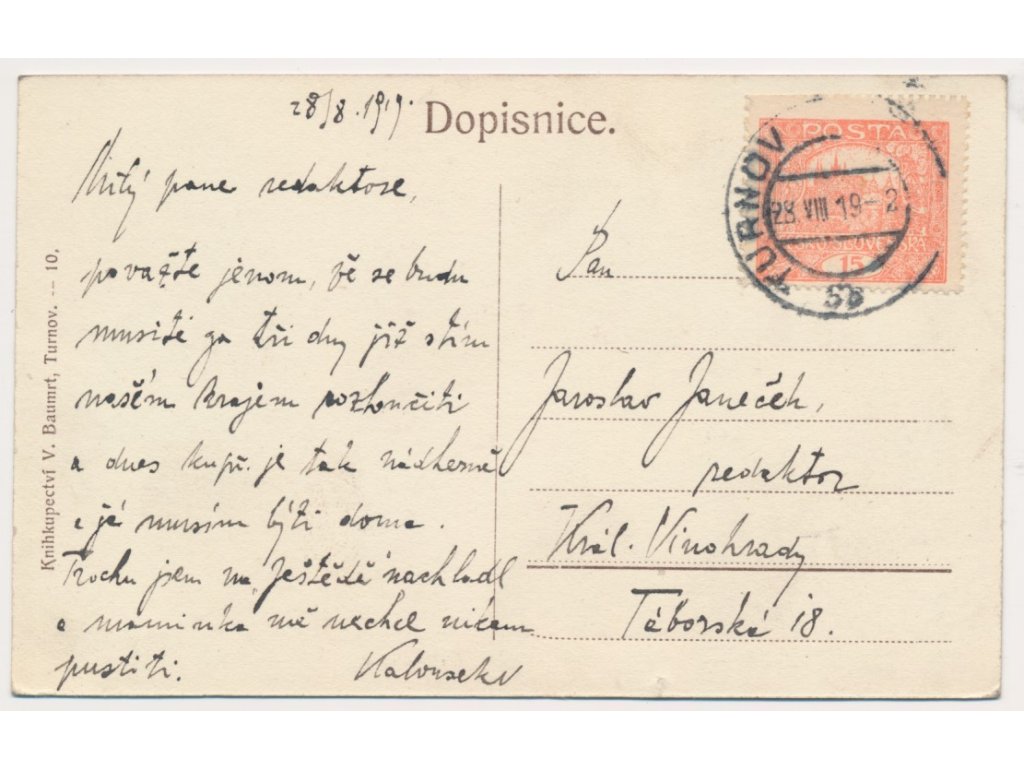 28/8. 1919.
Dopisnice.
Milý pane redaktore,
považte jenom, že se budu
musiti za tři dny již s tím
naším krajem rozloučiti
a dnes kupř. je tak nádherně
a já musím býti doma.
Trochu jsem na Ještědě nachladl
a maminka mě nechce nikam
pustiti.
Knihkupectví V. Baumrt, Turnov. -- 10.
POSTA
ČESKO SLOVENSKÁ
15
TURNOV
28. VIII 19-2
5b
Pan
Jaroslav Janeček,
redaktor
Král. Vinohrady
Táborská 18.